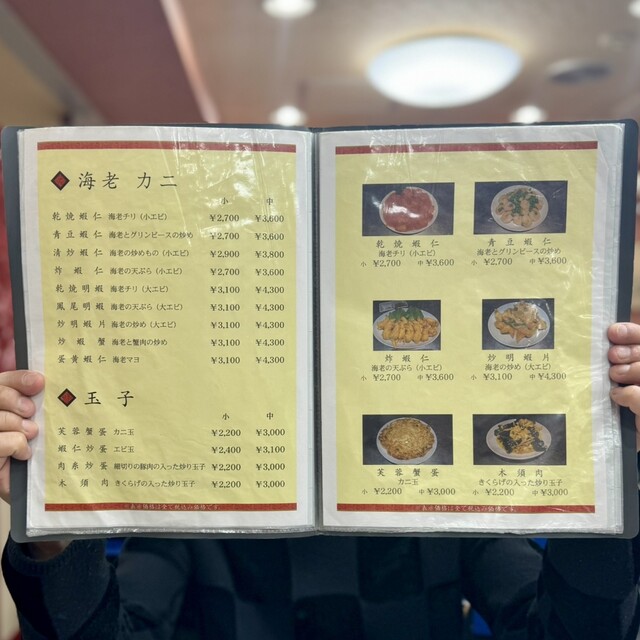 海老 カニ
小 中
乾焼蝦仁 海老チリ（小エビ） ¥2,700 ¥3,600
青豆蝦仁 海老とグリンピースの炒め ¥2,700 ¥3,600
清炒蝦仁 海老の炒めもの（小エビ） ¥2,900 ¥3,800
炸蝦仁 海老の天ぷら（小エビ） ¥2,700 ¥3,600
乾焼明蝦 海老チリ（大エビ） ¥3,100 ¥4,300
鳳尾明蝦 海老の天ぷら（大エビ） ¥3,100 ¥4,300
炒明蝦片 海老の炒め（大エビ） ¥3,100 ¥4,300
炒蝦蟹 海老と蟹肉の炒め ¥3,100 ¥4,300
蛋黄蝦仁 海老マヨ ¥3,100 ¥4,300
玉子
小 中
芙蓉蟹蛋 カニ玉 ¥2,200 ¥3,000
蝦仁炒蛋 エビ玉 ¥2,400 ¥3,100
肉糸炒蛋 細切りの豚肉の入った炒り玉子 ¥2,200 ¥3,000
木須肉 きくらげの入った炒り玉子 ¥2,200 ¥3,000
※表示価格は全て税込み価格です。
乾焼蝦仁
海老チリ（小エビ）
小 ¥2,700 中 ¥3,600
青豆蝦仁
海老とグリンピースの炒め
小 ¥2,700 中 ¥3,600
炸蝦仁
海老の天ぷら（小エビ）
小 ¥2,700 中 ¥3,600
炒明蝦片
海老の炒め（大エビ）
小 ¥3,100 中 ¥4,300
芙蓉蟹蛋
カニ玉
小 ¥2,200 中 ¥3,000
木須肉
きくらげの入った炒り玉子
小 ¥2,200 中 ¥3,000
※表示価格は全て税込み価格です。